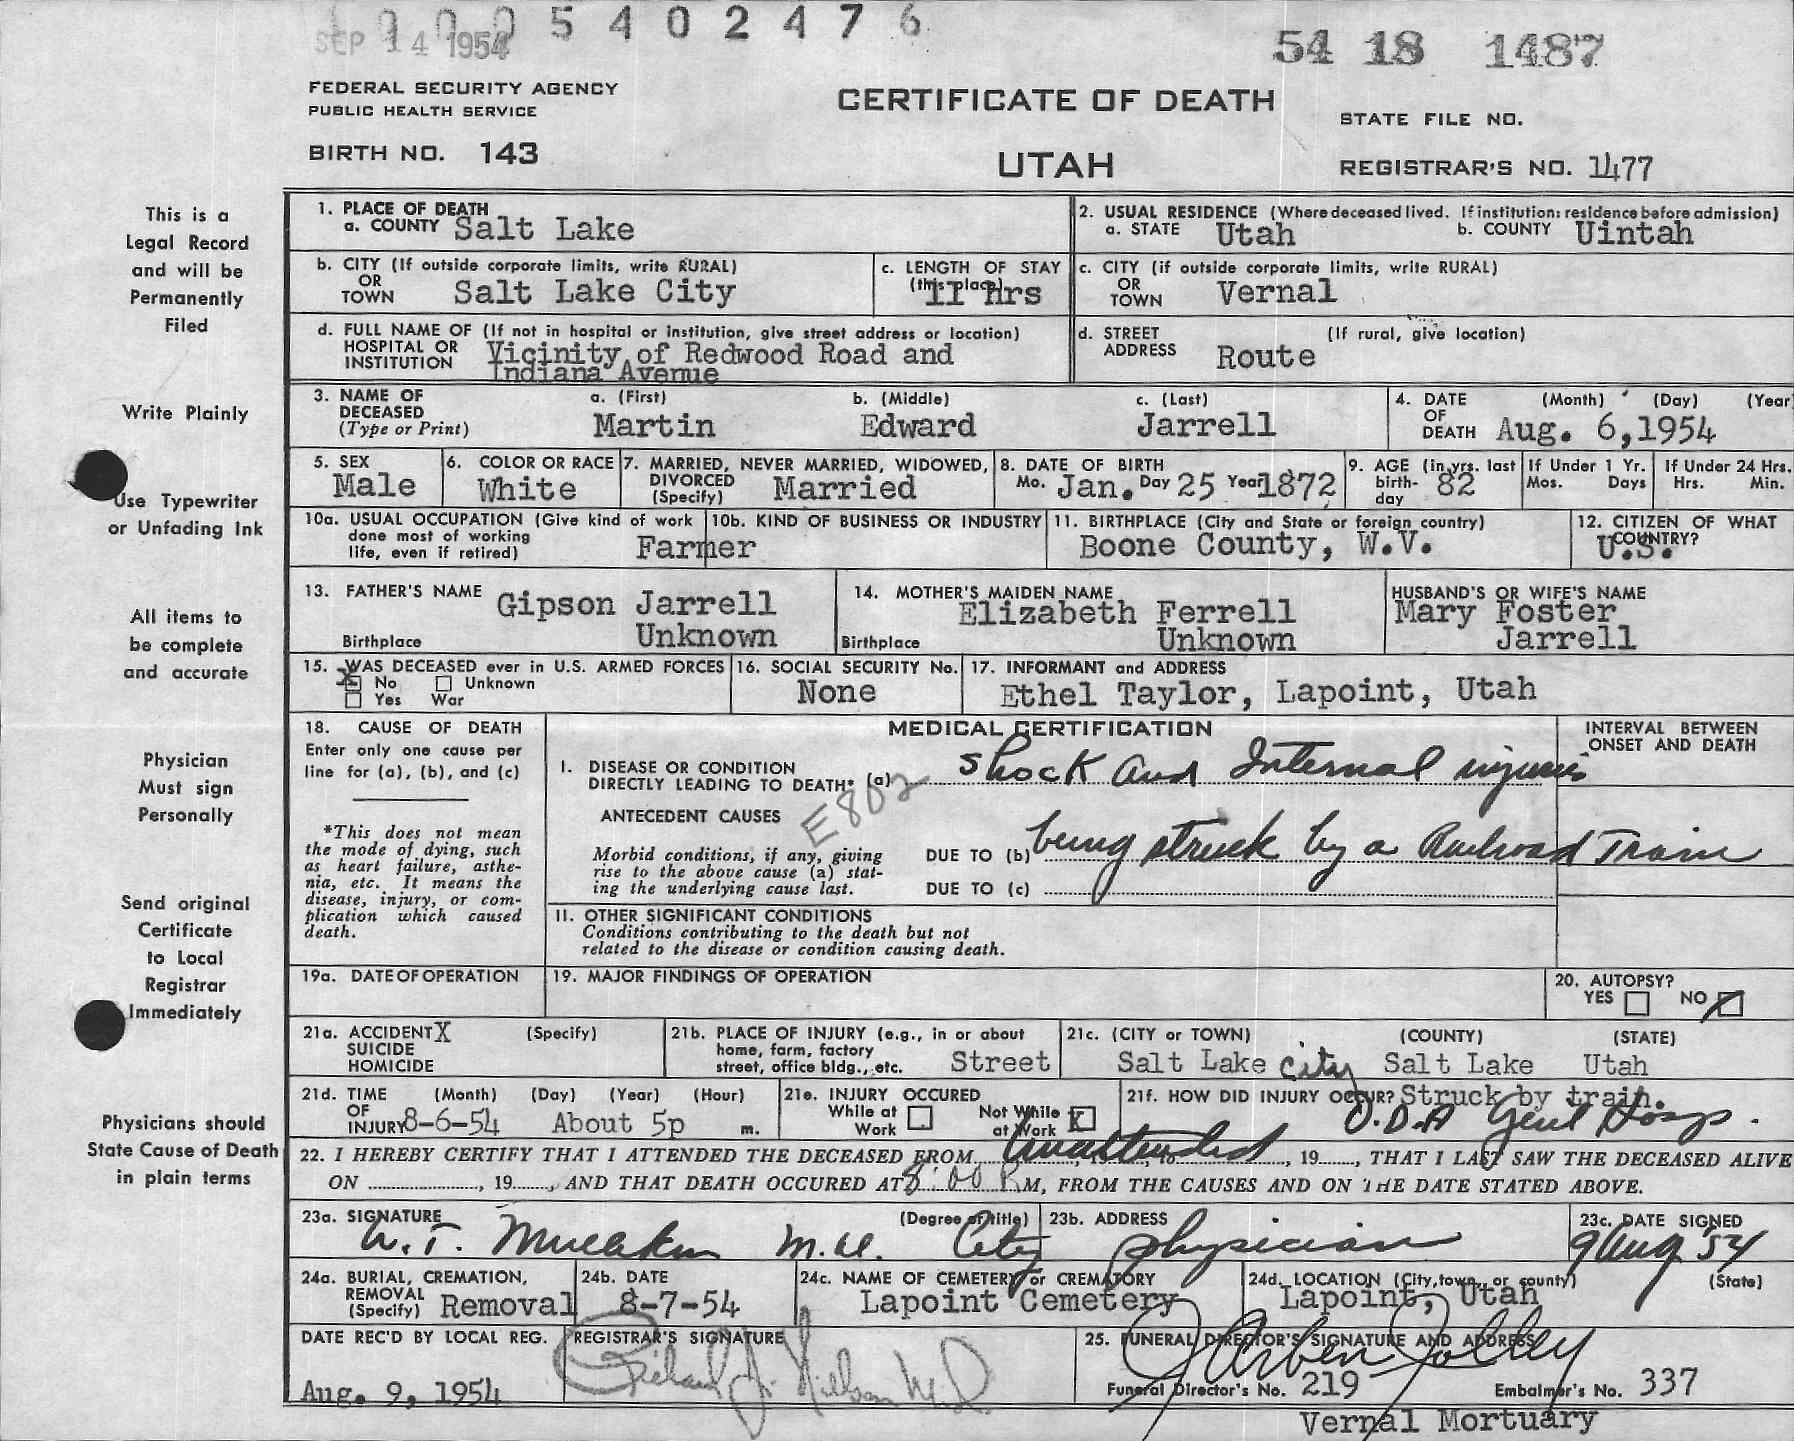 10005402476
SEP 14 1954
54 18 1487
FEDERAL SECURITY AGENCY
PUBLIC HEALTH SERVICE
CERTIFICATE OF DEATH
STATE FILE NO.
BIRTH NO. 143
UTAH
REGISTRAR'S NO. 1477
This is a
Legal Record
and will be
Permanently
Filed
Write Plainly
Use Typewriter
or Unfading Ink
All items to
be complete
and accurate
Physician
Must sign
Personally
Send original
Certificate
to Local
Registrar
Immediately
Physicians should
State Cause of Death
in plain terms
1. PLACE OF DEATH
a. COUNTY Salt Lake
2. USUAL RESIDENCE (Where deceased lived. If institution: residence before admission)
a. STATE Utah b. COUNTY Uintah
b. CITY (If outside corporate limits, write RURAL)
OR
TOWN Salt Lake City
c. LENGTH OF STAY
(this place) 11 hrs
c. CITY (if outside corporate limits, write RURAL)
OR
TOWN Vernal
d. FULL NAME OF (If not in hospital or institution, give street address or location)
HOSPITAL OR
INSTITUTION Vicinity of Redwood Road and
Indiana Avenue
d. STREET (If rural, give location)
ADDRESS Route
3. NAME OF
DECEASED
(Type or Print)
a. (First) b. (Middle) c. (Last)
Martin Edward Jarrell
4. DATE (Month) (Day) (Year
OF
DEATH Aug. 6,1954
5. SEX
Male
6. COLOR OR RACE
White
7. MARRIED, NEVER MARRIED, WIDOWED,
DIVORCED
(Specify) Married
8. DATE OF BIRTH
Mo. Jan. Day 25 Year 1872
9. AGE (in yrs. last
birth-
day 82
If Under 1 Yr.
Mos. Days
If Under 24 Hrs.
Hrs. Min.
10a. USUAL OCCUPATION (Give kind of work
done most of working
life, even if retired) Farmer
10b. KIND OF BUSINESS OR INDUSTRY
11. BIRTHPLACE (City and State or foreign country)
Boone County, W.V.
12. CITIZEN OF WHAT
COUNTRY?
U.S.
13. FATHER'S NAME Gipson Jarrell
Birthplace Unknown
14. MOTHER'S MAIDEN NAME
Elizabeth Ferrell
Birthplace Unknown
HUSBAND'S OR WIFE'S NAME
Mary Foster
Jarrell
15. WAS DECEASED ever in U.S. ARMED FORCES
X No Unknown
Yes War
16. SOCIAL SECURITY No.
None
17. INFORMANT and ADDRESS
Ethel Taylor, Lapoint, Utah
18. CAUSE OF DEATH
Enter only one cause per
line for (a), (b), and (c)
*This does not mean
the mode of dying, such
as heart failure, asthe-
nia, etc. It means the
disease, injury, or com-
plication which caused
death.
MEDICAL CERTIFICATION
INTERVAL BETWEEN
ONSET AND DEATH
I. DISEASE OR CONDITION
DIRECTLY LEADING TO DEATH* (a) Shock and Internal injuries
E802
ANTECEDENT CAUSES
Morbid conditions, if any, giving
rise to the above cause (a) stat-
ing the underlying cause last.
DUE TO (b) being struck by a Railroad Train
DUE TO (c)
II. OTHER SIGNIFICANT CONDITIONS
Conditions contributing to the death but not
related to the disease or condition causing death.
19a. DATE OF OPERATION
19. MAJOR FINDINGS OF OPERATION
20. AUTOPSY?
YES NO
21a. ACCIDENT X (Specify)
SUICIDE
HOMICIDE
21b. PLACE OF INJURY (e.g., in or about
home, farm, factory
street, office bldg., etc. Street
21c. (CITY or TOWN) (COUNTY) (STATE)
Salt Lake City Salt Lake Utah
21d. TIME (Month) (Day) (Year) (Hour)
OF
INJURY 8-6-54 About 5p m.
21e. INJURY OCCURED
While at Work Not While at Work X
21f. HOW DID INJURY OCCUR? Struck by train.
O.D.A Genl Hosp.
22. I HEREBY CERTIFY THAT I ATTENDED THE DECEASED FROM Unattended, 19...., THAT I LAST SAW THE DECEASED ALIVE
ON ............, 19....., AND THAT DEATH OCCURED AT 8:00 P.M, FROM THE CAUSES AND ON THE DATE STATED ABOVE.
23a. SIGNATURE (Degree or title)
W.T. M.D. City physician
23b. ADDRESS
23c. DATE SIGNED
9 Aug 54
24a. BURIAL, CREMATION,
REMOVAL
(Specify) Removal
24b. DATE
8-7-54
24c. NAME OF CEMETERY or CREMATORY
Lapoint Cemetery
24d. LOCATION (City, town, or county) (State)
Lapoint, Utah
DATE REC'D BY LOCAL REG.
Aug. 9, 1954
REGISTRAR'S SIGNATURE
Richard M.D.
25. FUNERAL DIRECTOR'S SIGNATURE AND ADDRESS
Arben Jolley
Funeral Director's No. 219 Embalmer's No. 337
Vernal Mortuary